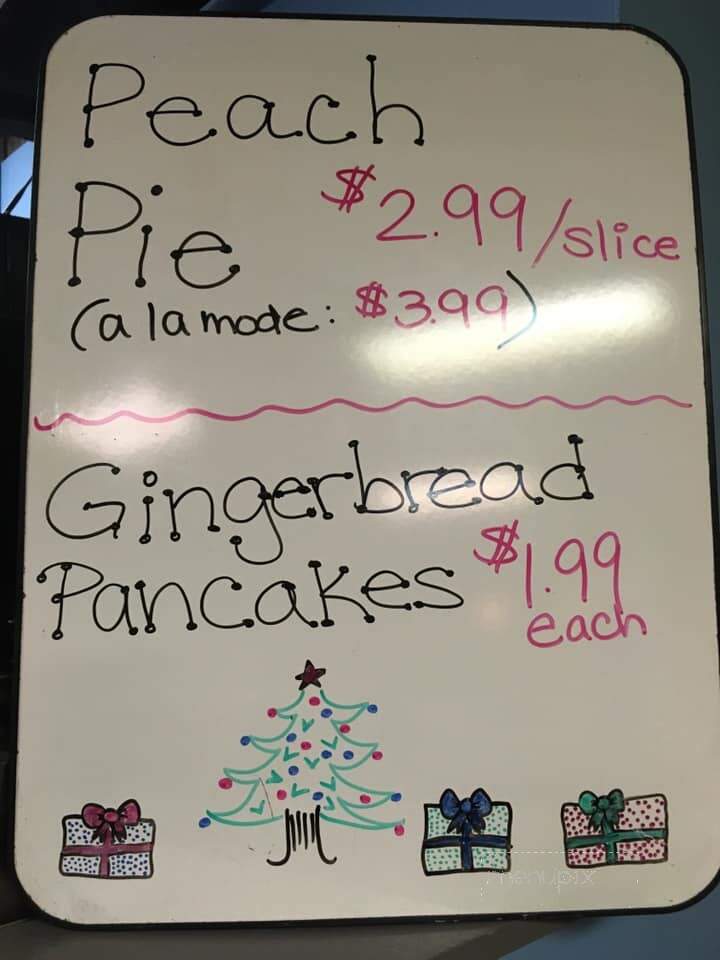 Peach
Pie $2.99/slice
(a la mode: $3.99)
Gingerbread
Pancakes $1.99
each
menupix